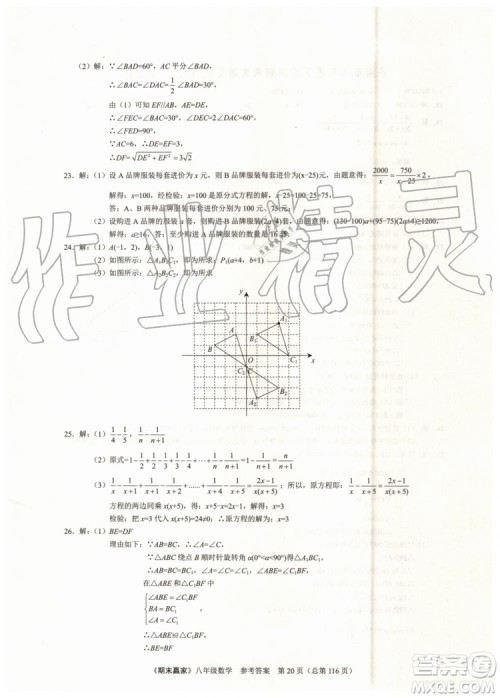 (2) 解：∵∠BAD=60°，AC 平分∠BAD，
∴∠BAC=∠DAC=1/2∠BAD=30°，
由（1）可知 EF//AB，AE=DE，
∴∠FED=90°，
∵AC=6，∴DE=EF=3，
∴DF=√(DE²+EF²)=3√2
23. 解：（1）设 A 品牌服装每套进价为 x 元，则 B 品牌服装每套进价为(x−25)元，由题意得：2000/x=750/(x−25)×2，
解得：x=100，经检验：x=100 是原分式方程的解，
（2）设购进 A 品牌的服装 a 套，则购进 B 品牌服装(2a+4)套，由题意得：(130-100)a+(95-75)(2a+4)≥1200，
解得：a≥16，
24. 解：（1）A(−1，2)，B(−3，1)
（2）如图所示：△A₁B₁C₁，即为所求；P₁(a+4，b
（3）如图所示：△A₂B₂C₂，即为所求
y
A
A₁
B
B₁
O
C₁
x
C₂
C
B₂
A₂
25. 解：（1）1/4−1/5，1/n−1/(n+1)
（2）原式=1−1/2+1/2−1/3+⋯+1/n−1/(n+1)=1−1/(n+1)=n/(n+1)
（3）1/x−1/(x+1)+1/(x+1)−1/(x+2)+⋯+1/(x+4)−1/(x+5)=(2x−1)/(x(x+5))；所以，原方程即：1/x−1/(x+5)=(2x−1)/(x(x+5))
方程的两边同乘 x(x+5)，得：x+5−x=2x−1，解得：x=3
检验：把 x=3 代入 x(x+5)=24≠0，∴原方程的解为：x=3
26. 解：（1）BE=DF
理由如下：∵AB=BC，∴∠A=∠C
∵△ABC 绕点 B 顺时针旋转角 α(0°<α<90°)得△A₁BC₁，
∴AB=BC=BC₁，∠A=∠C=∠C₁，∠ABE=∠C₁BF
在△ABE 和△C₁BF 中
∠ABE=∠C₁BF
BA=BC₁
∠A=∠C₁
∴△ABE≌△C₁BF
《期末赢家》八年级数学 参考答案 第 20 页（总第 116 页）
作业精灵